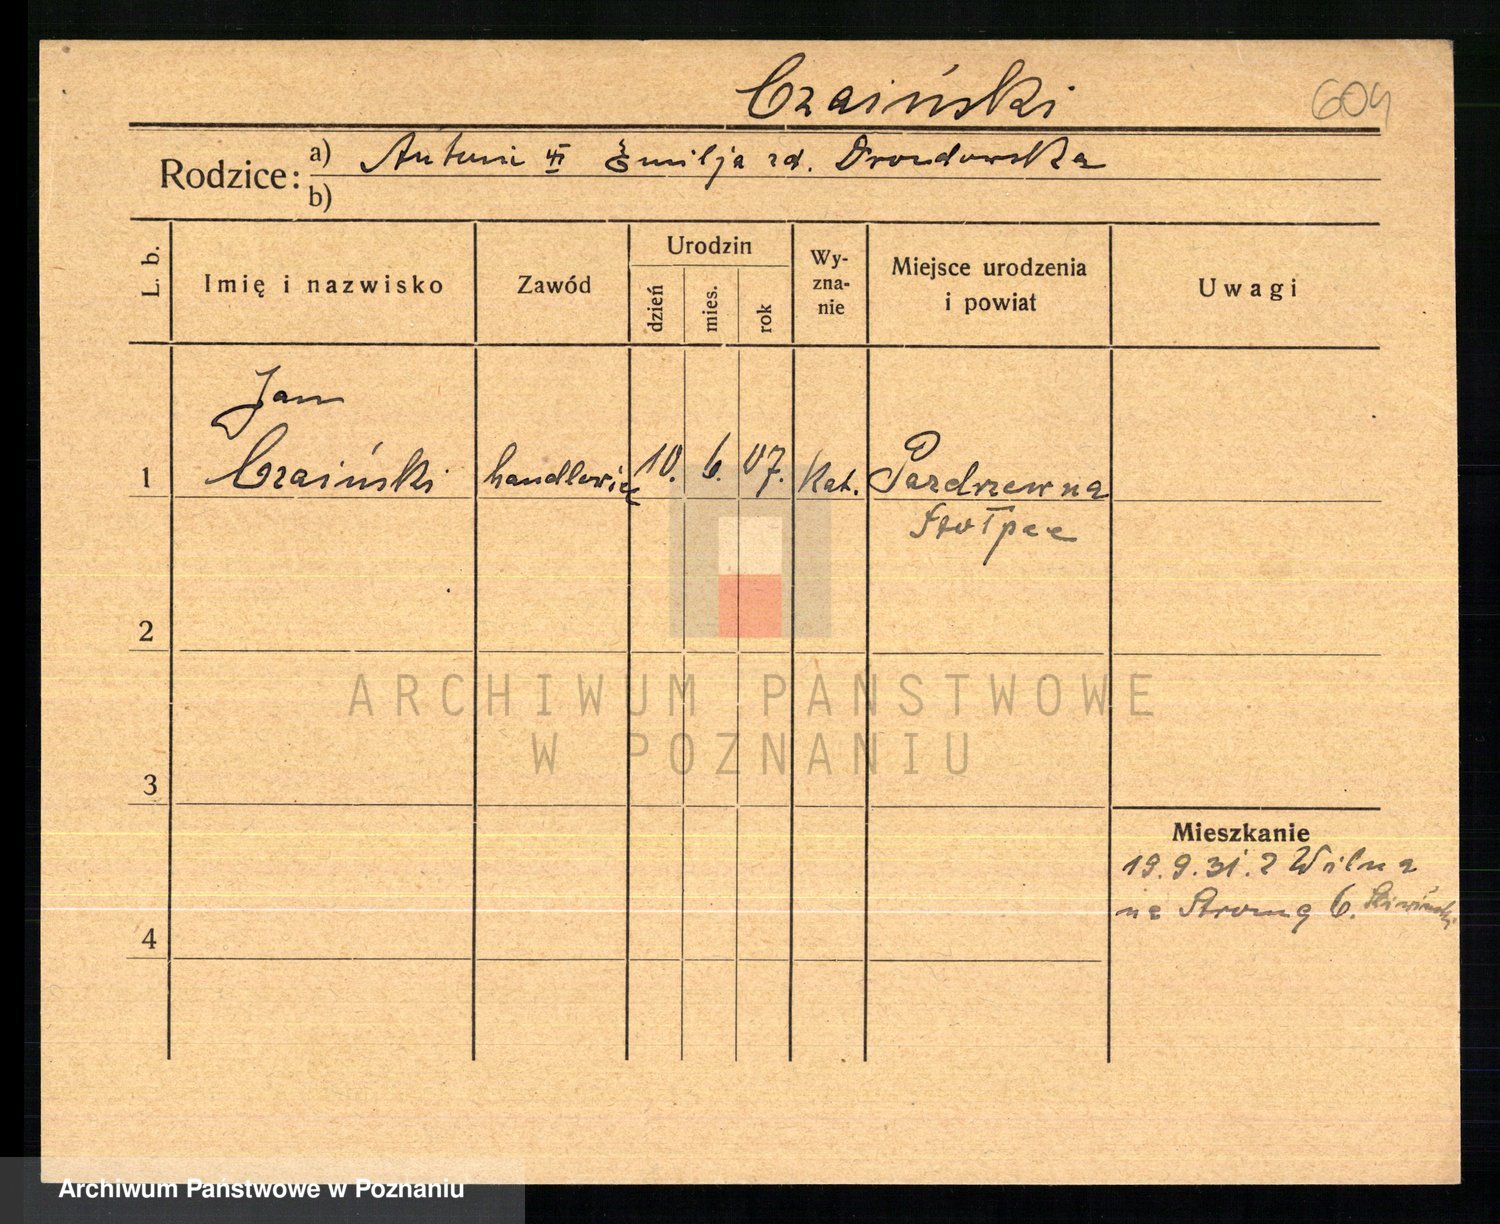 Czaiński
604
Rodzice:
a) Antoni Emilja zd. Drozdowska
b)
L. b.
Imię i nazwisko
Zawód
Urodzin
dzień
mies.
rok
Wy-
zna-
nie
Miejsce urodzenia
i powiat
Uwagi
Jan
1 Czaiński handlowiec 10. 6. 07. Kat.
Stołpce
2
3
4
ARCHIWUM PAŃSTWOWE
W POZNANIU
Mieszkanie
19.9.31. z Wilna
6.
Archiwum Państwowe w Poznaniu